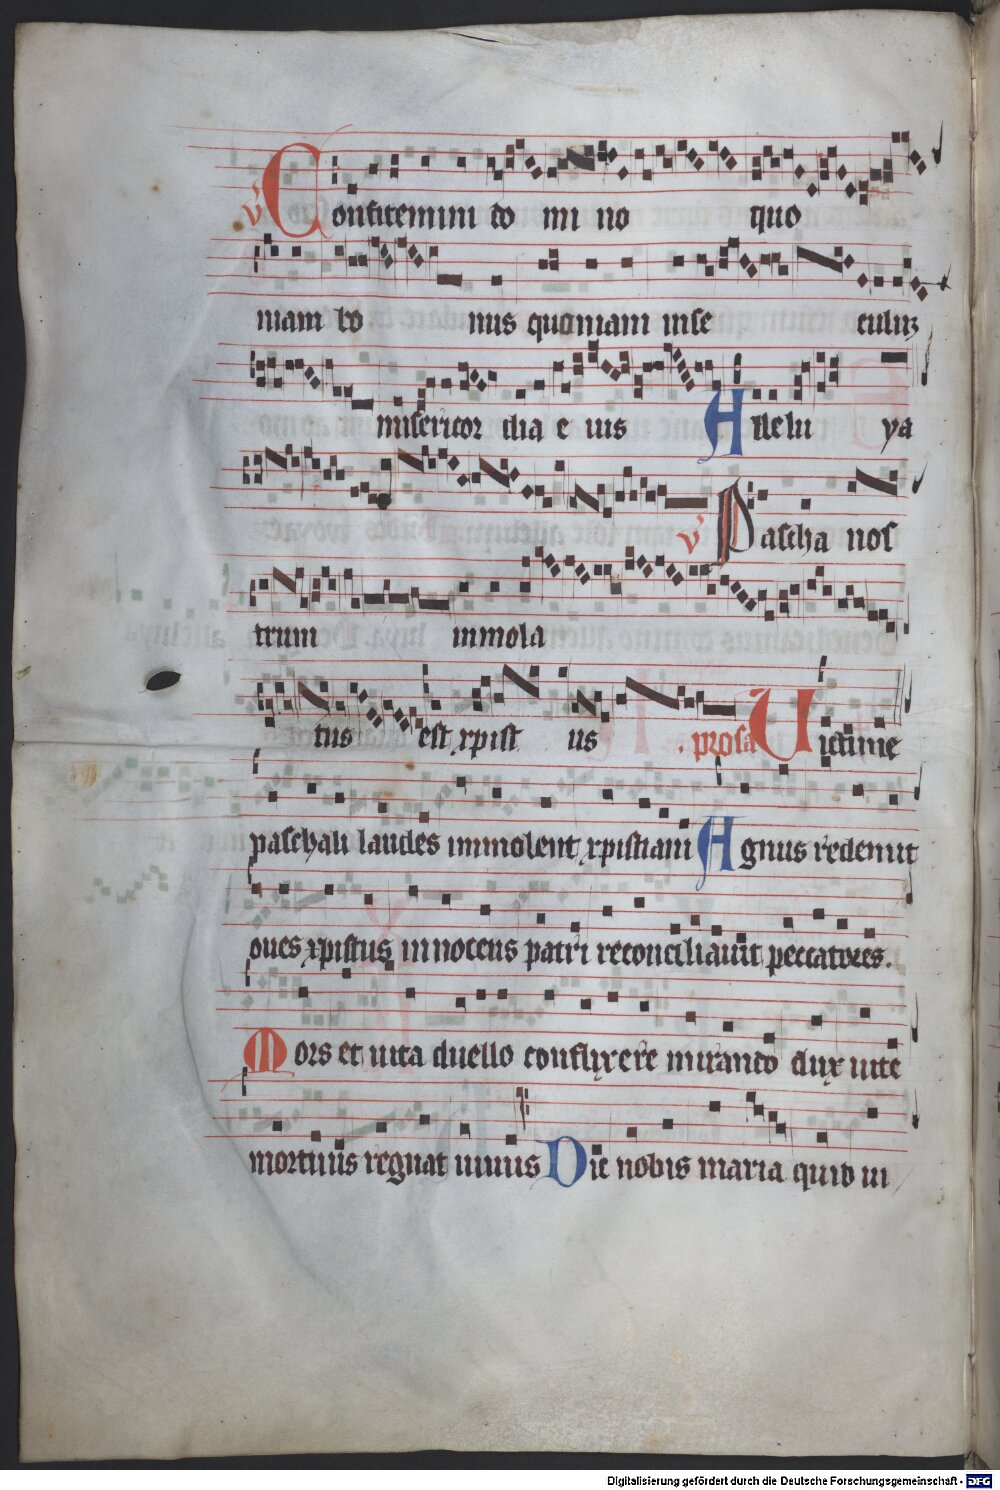 v Confitemini do mi no quo
niam bo nus quoniam inse culuz
misericor dia e ius Allelu ya
v Pascha nos
trum inmola
tus est xpist us . prosa Uictime
paschali laudes immolent xpistiani Agnus redemit
oues xpistus innocens patri reconciliauit peccatores.
Mors et uita duello conflixere mirando dux uite
mortuus regnat uiuus Dic nobis maria quid ui
Digitalisierung gefördert durch die Deutsche Forschungsgemeinschaft - DFG